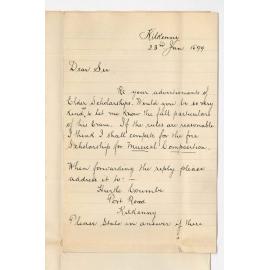 Kilkenny
23rd Jan 1899
Dear Sir
Re your advertisements of
Elder Scholarships. Would you be so very
kind to let me know the full particulars
of this Exam. If the rules are reasonable
I think I shall compete for the free
Scholarship for Musical Composition.
When forwarding the reply please
address it to:-
Coombe
Port Road
Kilkenny
Please State in answer if there